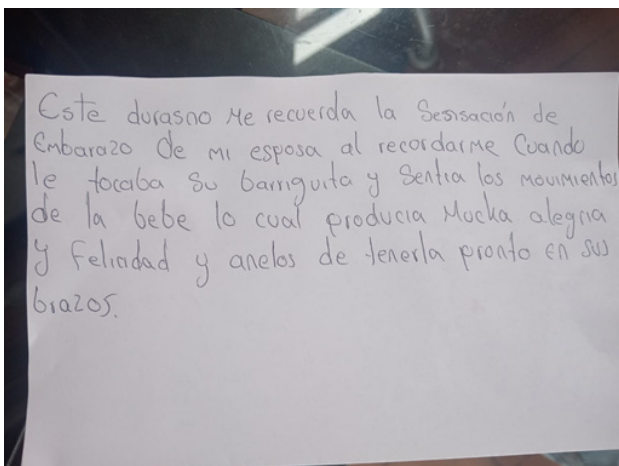 Este durasno me recuerda la Sesisación de
Embarazo de mi esposa al recordarme Cuando
le tocaba su barriguita y Sentia los movimientos
de la bebe lo cual producia Mucha alegria
y Felicidad y anelos de tenerla pronto en sus
brazos.